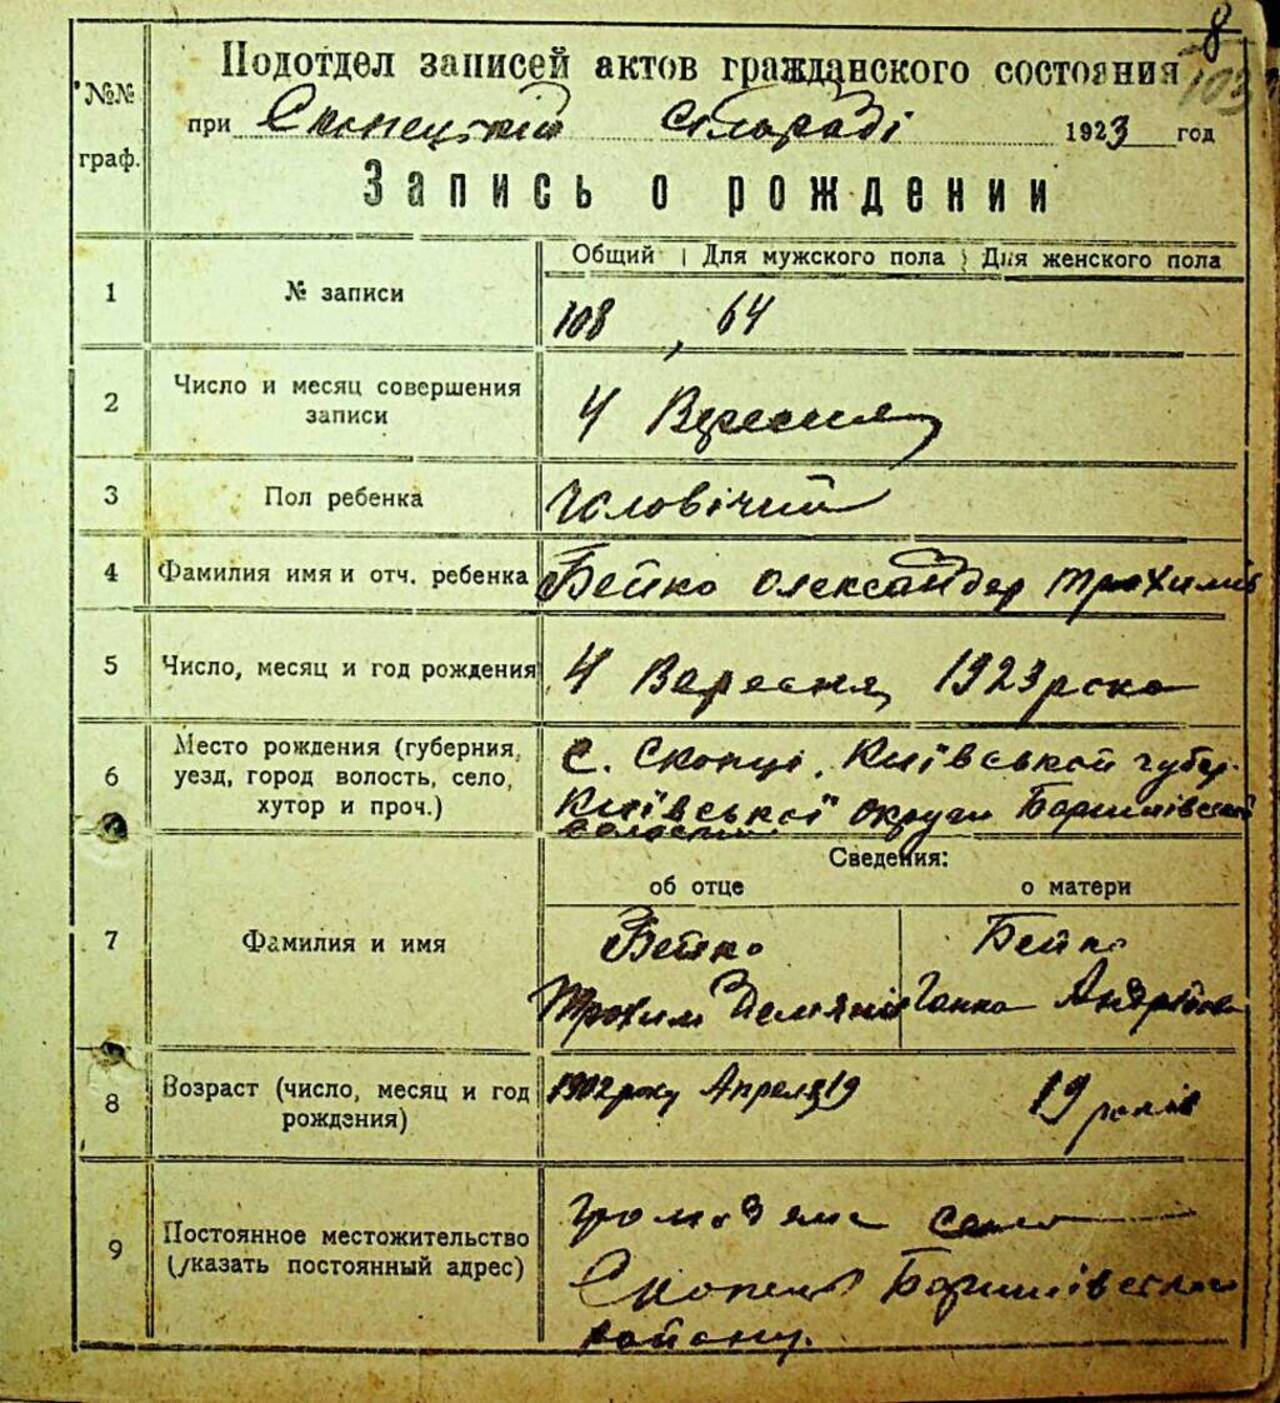 8
103
Подотдел записей актов гражданского состояния
№№ граф.
при Скопецкій сільраді 1923 год
Запись о рождении
Общий | Для мужского пола | Для женского пола
1 № записи 108, 64
2 Число и месяц совершения записи 4 Вересня
3 Пол ребенка Чоловічий
4 Фамилия имя и отч. ребенка Бейко Олександер Трохимів
5 Число, месяц и год рождения 4 Вересня 1923 року
6 Место рождения (губерния, уезд, город волость, село, хутор и проч.) с. Скопці, Київської губер.
Київської округи Баришівської
волости
Сведения:
об отце о матери
7 Фамилия и имя Бейко Бейко
Трохим Демянів Ганна Андріївна
8 Возраст (число, месяц и год рождения) 1902 року Апреля 19 19 років
9 Постоянное местожительство (указать постоянный адрес) громадяне села
Скопец Баришівского
району.